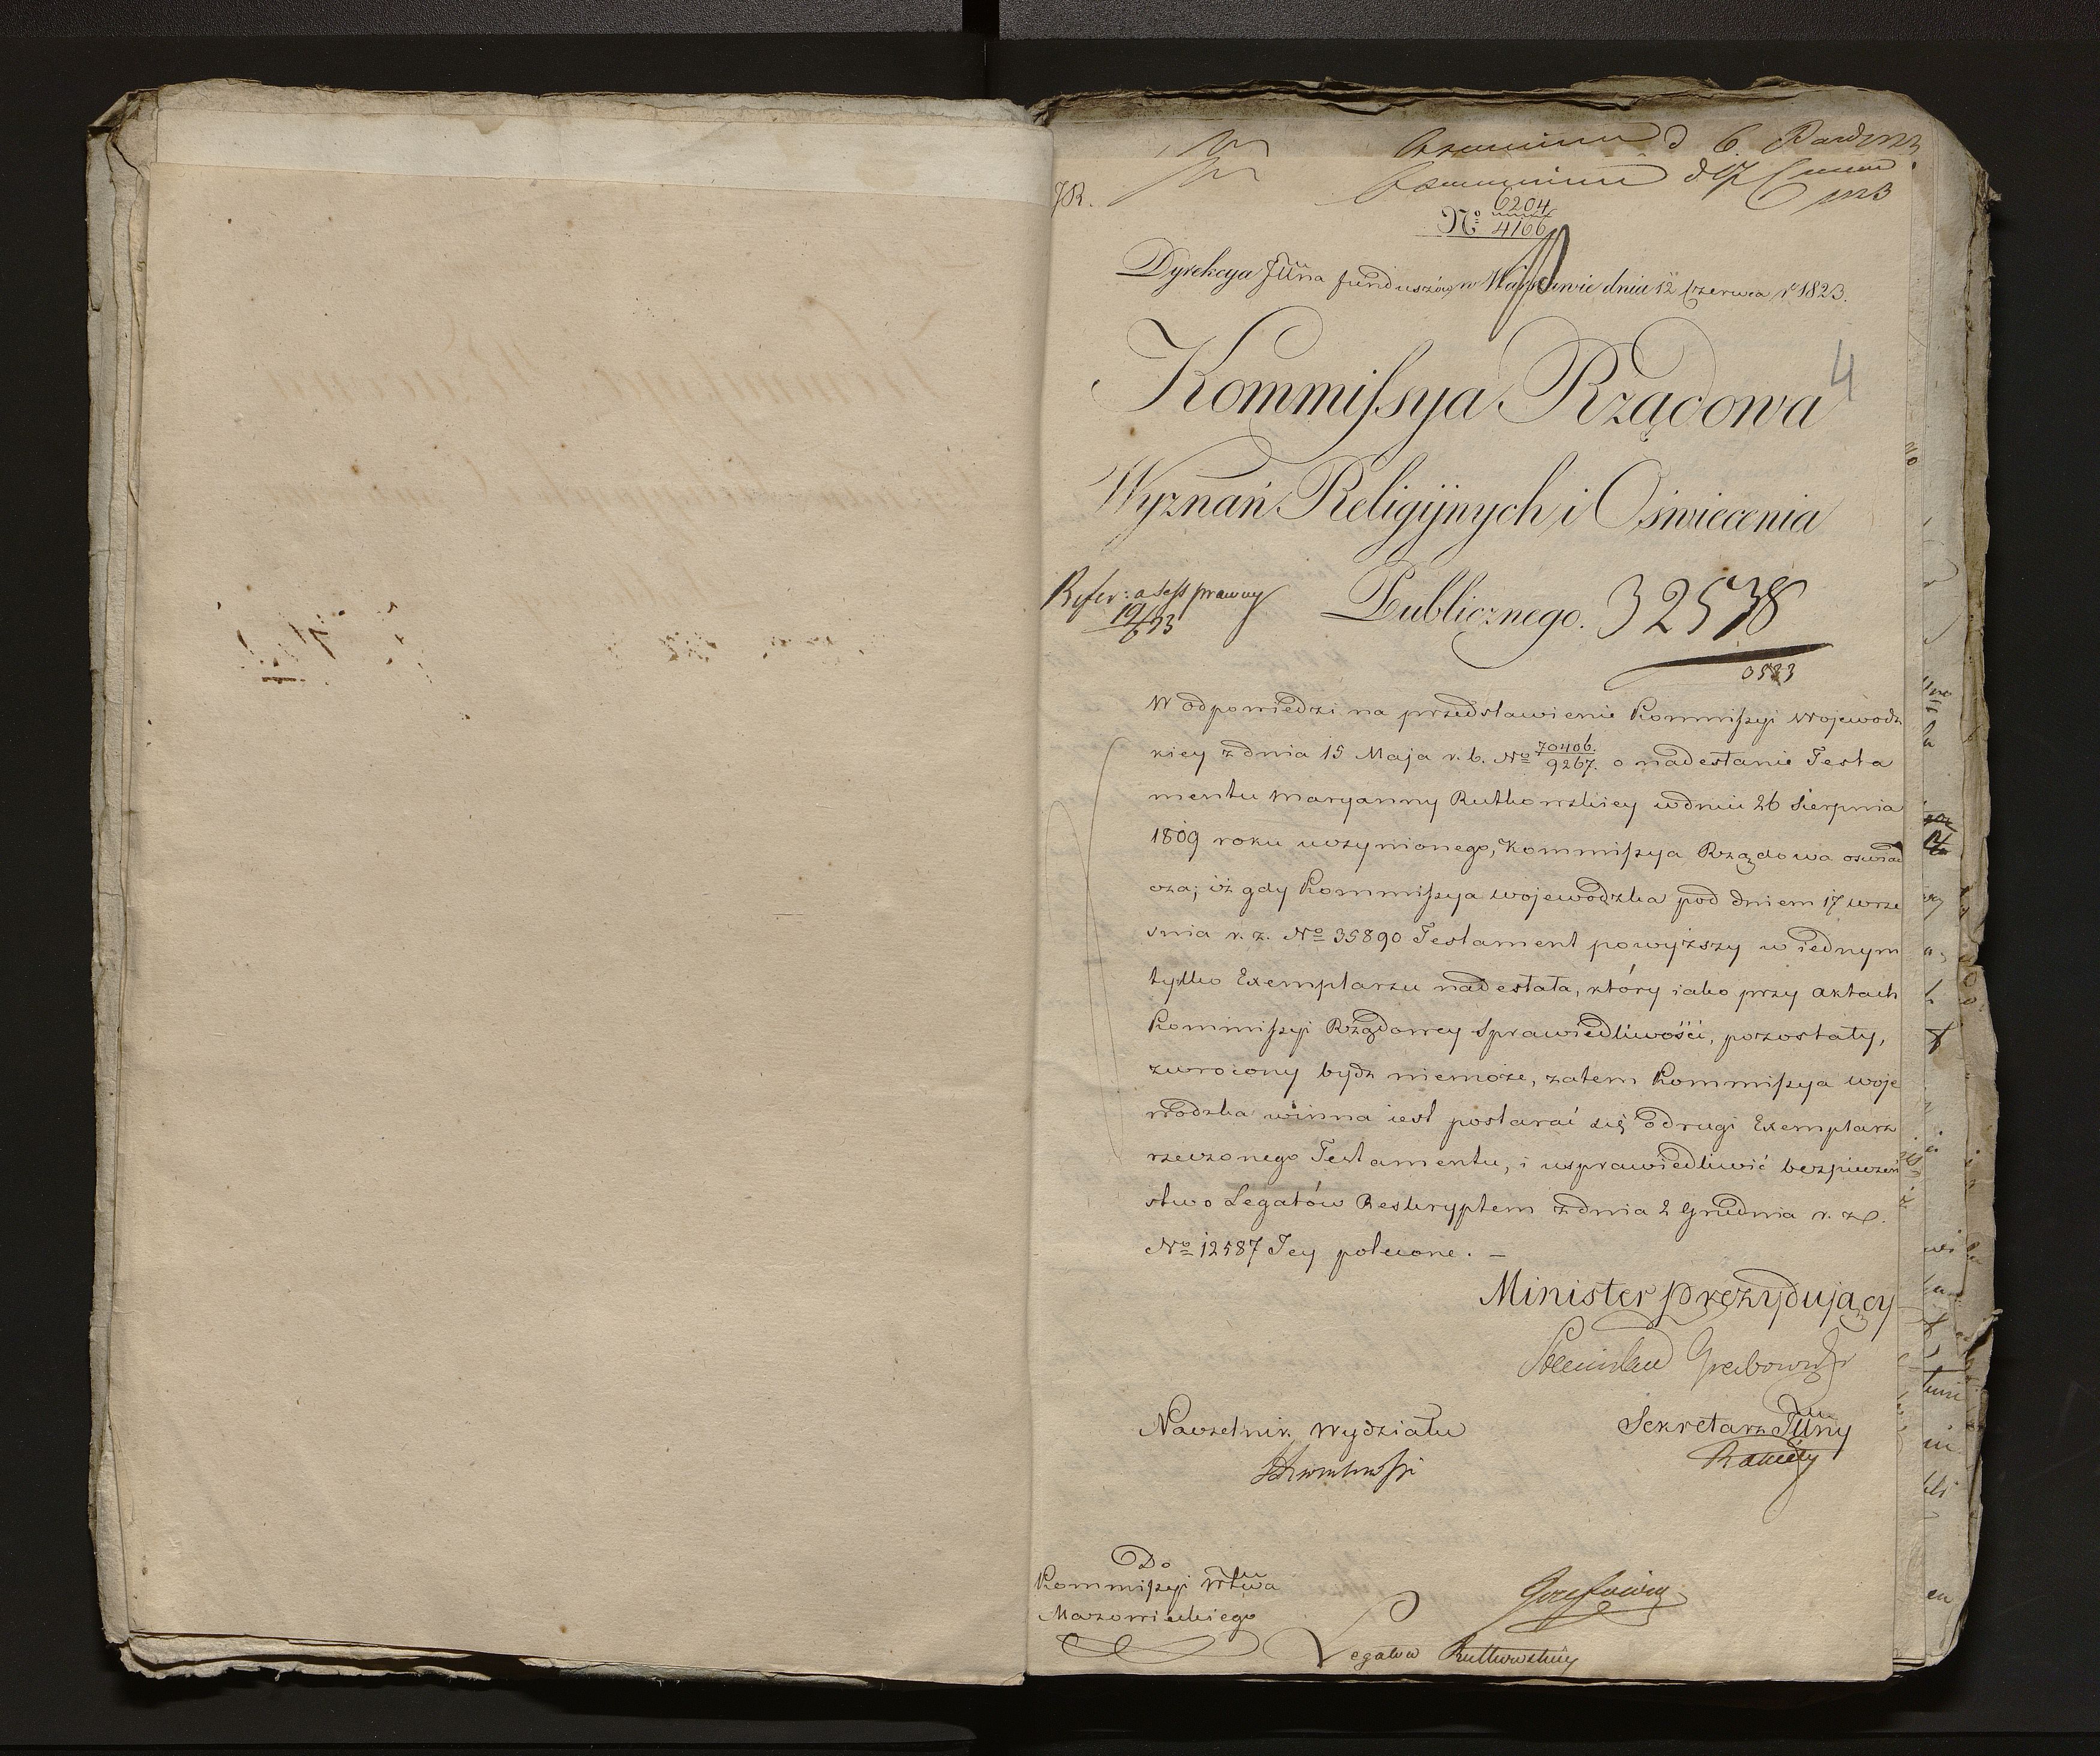 JR.
No 6204
4166
Dyrekcya Jlna funduszów w Warszawie dnia 12 Czerwca r 1823.
4
Kommissya Rządowa
Wyznań Religijnych i Oświecenia
Refer: assess prawny
Publicznego. 32538
19/6 23
W odpowiedzi na przedstawienie Kommissyi Wojewodz
kiey z dnia 15 Maja r. b. No 70406. o nadesłanie Testa
9267.
mentu Maryanny Rutkowskiey w dniu 26 Sierpnia
1809 roku uczynionego, Kommissya Rządowa oświad
cza; iż gdy Kommissya wojewodzka pod dniem 17 wrze
snia r. z. No 35890 Testament powyższy w iednym
tylko Exemplarzu nadesłała, który iako przy aktach
Kommissyi Rządowey Sprawiedliwości, pozostały,
zwrocony bydz niemoże, zatem Kommissya woje
wodzka winna iest postarać się o drugi Exemplarz
rzeczonego Testamentu, i usprawiedliwić bezpieczeń
stwo Legatów Reskryptem z dnia 2 Grudnia r. z.
No 12587 Jey polecone. –
Minister prezydujący
Stanisław Grabowski
Naczelnik Wydziału
Sekretarz Jlny
Do
Kommissyi Wtwa
Mazowieckiego
Legatów Rutkowskiey